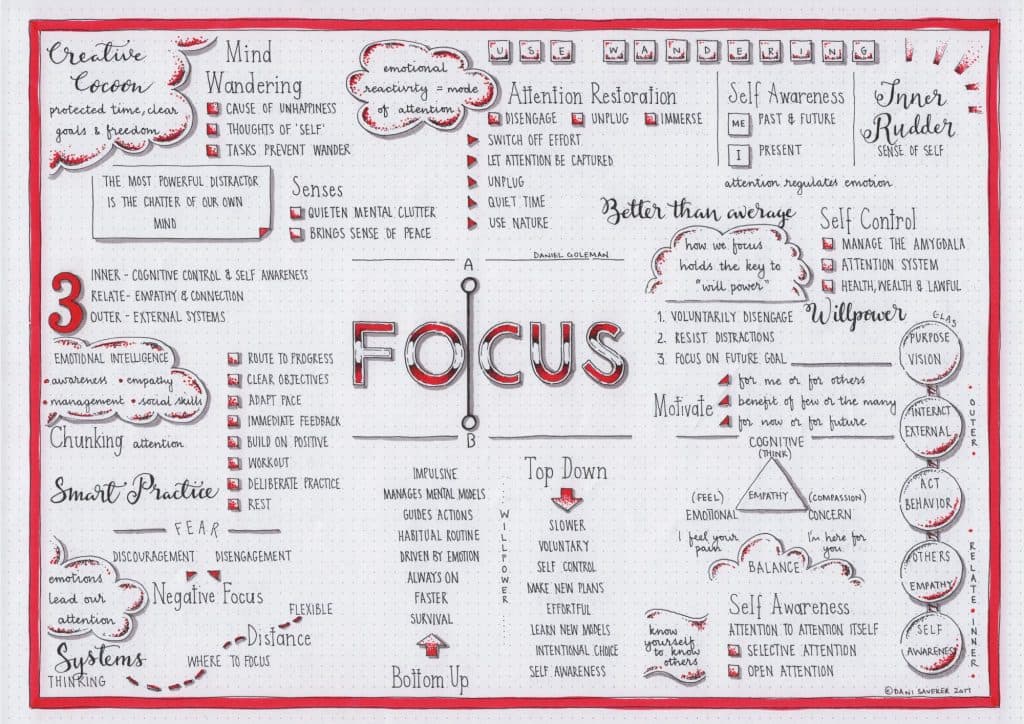 Creative
Cocoon
protected time, clear
goals & freedom
Mind
Wandering
CAUSE OF UNHAPPINESS
THOUGHTS OF 'SELF'
TASKS PREVENT WANDER
emotional
reactivity = mode
of attention
USE WANDERING
Attention Restoration
DISENGAGE UNPLUG IMMERSE
SWITCH OFF EFFORT
LET ATTENTION BE CAPTURED
UNPLUG
QUIET TIME
USE NATURE
Self Awareness
ME PAST & FUTURE
I PRESENT
Inner
Rudder
SENSE OF SELF
attention regulates emotion
THE MOST POWERFUL DISTRACTOR
IS THE CHATTER OF OUR OWN
MIND
Senses
QUIETEN MENTAL CLUTTER
BRINGS SENSE OF PEACE
Better than average
how we focus
holds the key to
"will power"
Self Control
MANAGE THE AMYGDALA
ATTENTION SYSTEM
HEALTH, WEALTH & LAWFUL
3
INNER - COGNITIVE CONTROL & SELF AWARENESS
RELATE - EMPATHY & CONNECTION
OUTER - EXTERNAL SYSTEMS
DANIEL GOLEMAN
A
FOCUS
B
Willpower
1. VOLUNTARILY DISENGAGE
2. RESIST DISTRACTIONS
3. FOCUS ON FUTURE GOAL
EMOTIONAL INTELLIGENCE
• awareness • empathy
• management • social skills
Chunking attention
Smart Practice
ROUTE TO PROGRESS
CLEAR OBJECTIVES
ADAPT PACE
IMMEDIATE FEEDBACK
BUILD ON POSITIVE
WORKOUT
DELIBERATE PRACTICE
REST
Motivate
for me or for others
benefit of few or the many
for now or for future
GLAS
PURPOSE
VISION
INTERACT
EXTERNAL
ACT
BEHAVIOR
OTHERS
EMPATHY
SELF
AWARENESS
OUTER •
• RELATE • INNER •
COGNITIVE
(THINK)
EMPATHY
(FEEL)
EMOTIONAL
(COMPASSION)
CONCERN
I feel your
pain
I'm here for
you
BALANCE
FEAR
DISCOURAGEMENT DISENGAGEMENT
emotions
lead our
attention
Negative Focus
FLEXIBLE
Distance
WHERE TO FOCUS
Systems
THINKING
IMPULSIVE
MANAGES MENTAL MODELS
GUIDES ACTIONS
HABITUAL ROUTINE
DRIVEN BY EMOTION
ALWAYS ON
FASTER
SURVIVAL
Bottom Up
WILLPOWER
Top Down
SLOWER
VOLUNTARY
SELF CONTROL
MAKE NEW PLANS
EFFORTFUL
LEARN NEW MODELS
INTENTIONAL CHOICE
SELF AWARENESS
know
yourself
to know
others
Self Awareness
ATTENTION TO ATTENTION ITSELF
SELECTIVE ATTENTION
OPEN ATTENTION